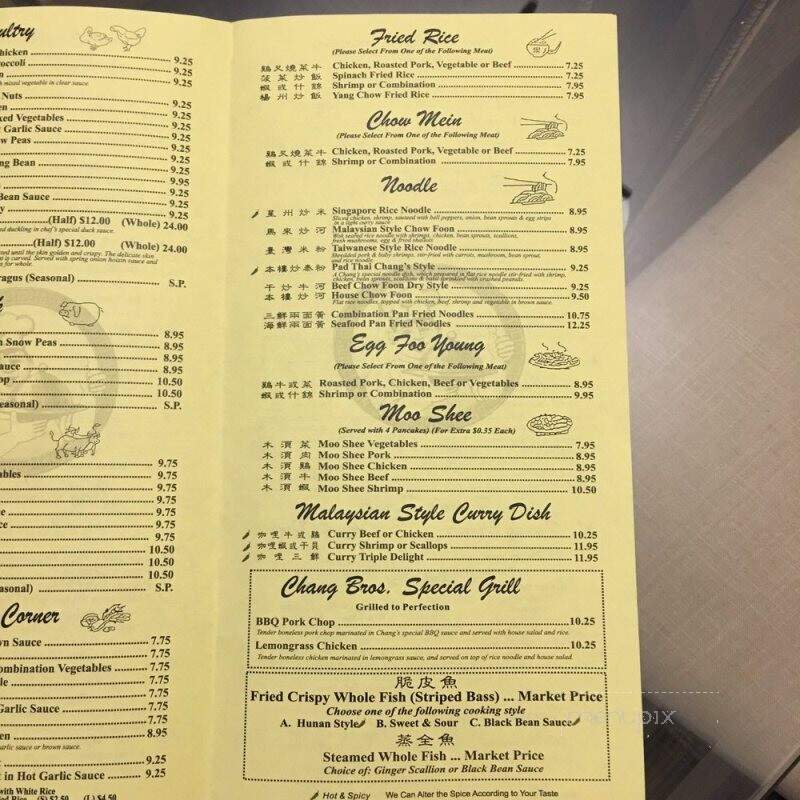 ultry
hicken 9.25
occoli 9.25
n 9.25
h mixed vegetable in clear sauce.
Nuts 9.25
en 9.25
xed Vegetables 9.25
Garlic Sauce 9.25
w Peas 9.25
9.25
ng Bean 9.25
9.95
Bean Sauce 9.25
y 9.25
(Half) $12.00 (Whole) 24.00
ed duckling in chef's special duck sauce.
(Half) $12.00 (Whole) 24.00
ed until the skin golden and crispy. The delicate skin
is carved. Served with spring onion hoisin sauce and
for whole.
ragus (Seasonal) S.P.
8.95
n Snow Peas 8.95
8.95
auce 8.95
op 10.50
10.50
easonal) S.P.
9.75
ables 9.75
9.75
9.75
e 9.75
ce 9.75
9.75
10.50
10.50
10.50
asonal) S.P.
Corner
wn Sauce 7.75
7.75
ombination Vegetables 7.75
le 7.75
7.75
Garlic Sauce 7.75
7.75
en 8.95
arlic sauce or brown sauce.
9.25
t in Hot Garlic Sauce 9.25
with White Rice
ied Rice (S) $2.50 (L) $4.50
Fried Rice
(Please Select From One of the Following Meat)
鷄叉燒菜牛 Chicken, Roasted Pork, Vegetable or Beef 7.25
菠菜炒飯 Spinach Fried Rice 7.25
蝦或什錦 Shrimp or Combination 7.95
楊州炒飯 Yang Chow Fried Rice 7.95
Chow Mein
(Please Select From One of the Following Meat)
鷄叉燒菜牛 Chicken, Roasted Pork, Vegetable or Beef 7.25
蝦或什錦 Shrimp or Combination 7.95
Noodle
星州炒米 Singapore Rice Noodle 8.95
Sliced chicken, shrimp, sauteed with bell peppers, onion, bean sprouts & egg strips
in a light curry sauce
馬來炒河 Malaysian Style Chow Foon 8.95
Wok seared rice noodle with shrimps, chicken, bean sprouts, scallions,
fresh mushrooms, egg & fried shallots
臺灣米粉 Taiwanese Style Rice Noodle 8.95
Shredded pork & baby shrimps, stir-fried with carrots, mushroom, bean sprout,
and rice noodle.
本樓炒泰粉 Pad Thai Chang's Style 9.25
A Chang's special noodle dish, which prepared in flat rice noodle stir-fried with shrimp,
chicken, bean sprouts, scallions & basil sprinkled with crushed peanuts.
干炒牛河 Beef Chow Foon Dry Style 9.25
本樓炒河 House Chow Foon 9.50
Flat rice noodles, topped with chicken, beef, shrimp and vegetable in brown sauce.
三鮮兩面黃 Combination Pan Fried Noodles 10.75
海鮮兩面黃 Seafood Pan Fried Noodles 12.25
Egg Foo Young
(Please Select From One of the Following Meat)
鷄牛或菜 Roasted Pork, Chicken, Beef or Vegetables 8.95
蝦或什錦 Shrimp or Combination 9.95
Moo Shee
(Served with 4 Pancakes) (For Extra $0.35 Each)
木須菜 Moo Shee Vegetables 7.95
木須肉 Moo Shee Pork 8.95
木須鷄 Moo Shee Chicken 8.95
木須牛 Moo Shee Beef 8.95
木須蝦 Moo Shee Shrimp 10.50
Malaysian Style Curry Dish
咖哩牛或鷄 Curry Beef or Chicken 10.25
咖哩蝦或干貝 Curry Shrimp or Scallops 11.95
咖哩三鮮 Curry Triple Delight 11.95
Chang Bros. Special Grill
Grilled to Perfection
BBQ Pork Chop 10.25
Tender boneless pork chop marinated in Chang's special BBQ sauce and served with house salad and rice.
Lemongrass Chicken 10.25
Tender boneless chicken marinated in lemongrass sauce, and served on top of rice noodle and house salad.
脆皮魚
Fried Crispy Whole Fish (Striped Bass) ... Market Price
Choose one of the following cooking style
A. Hunan Style B. Sweet & Sour C. Black Bean Sauce
蒸全魚
Steamed Whole Fish ... Market Price
Choice of: Ginger Scallion or Black Bean Sauce
Hot & Spicy We Can Alter the Spice According to Your Taste